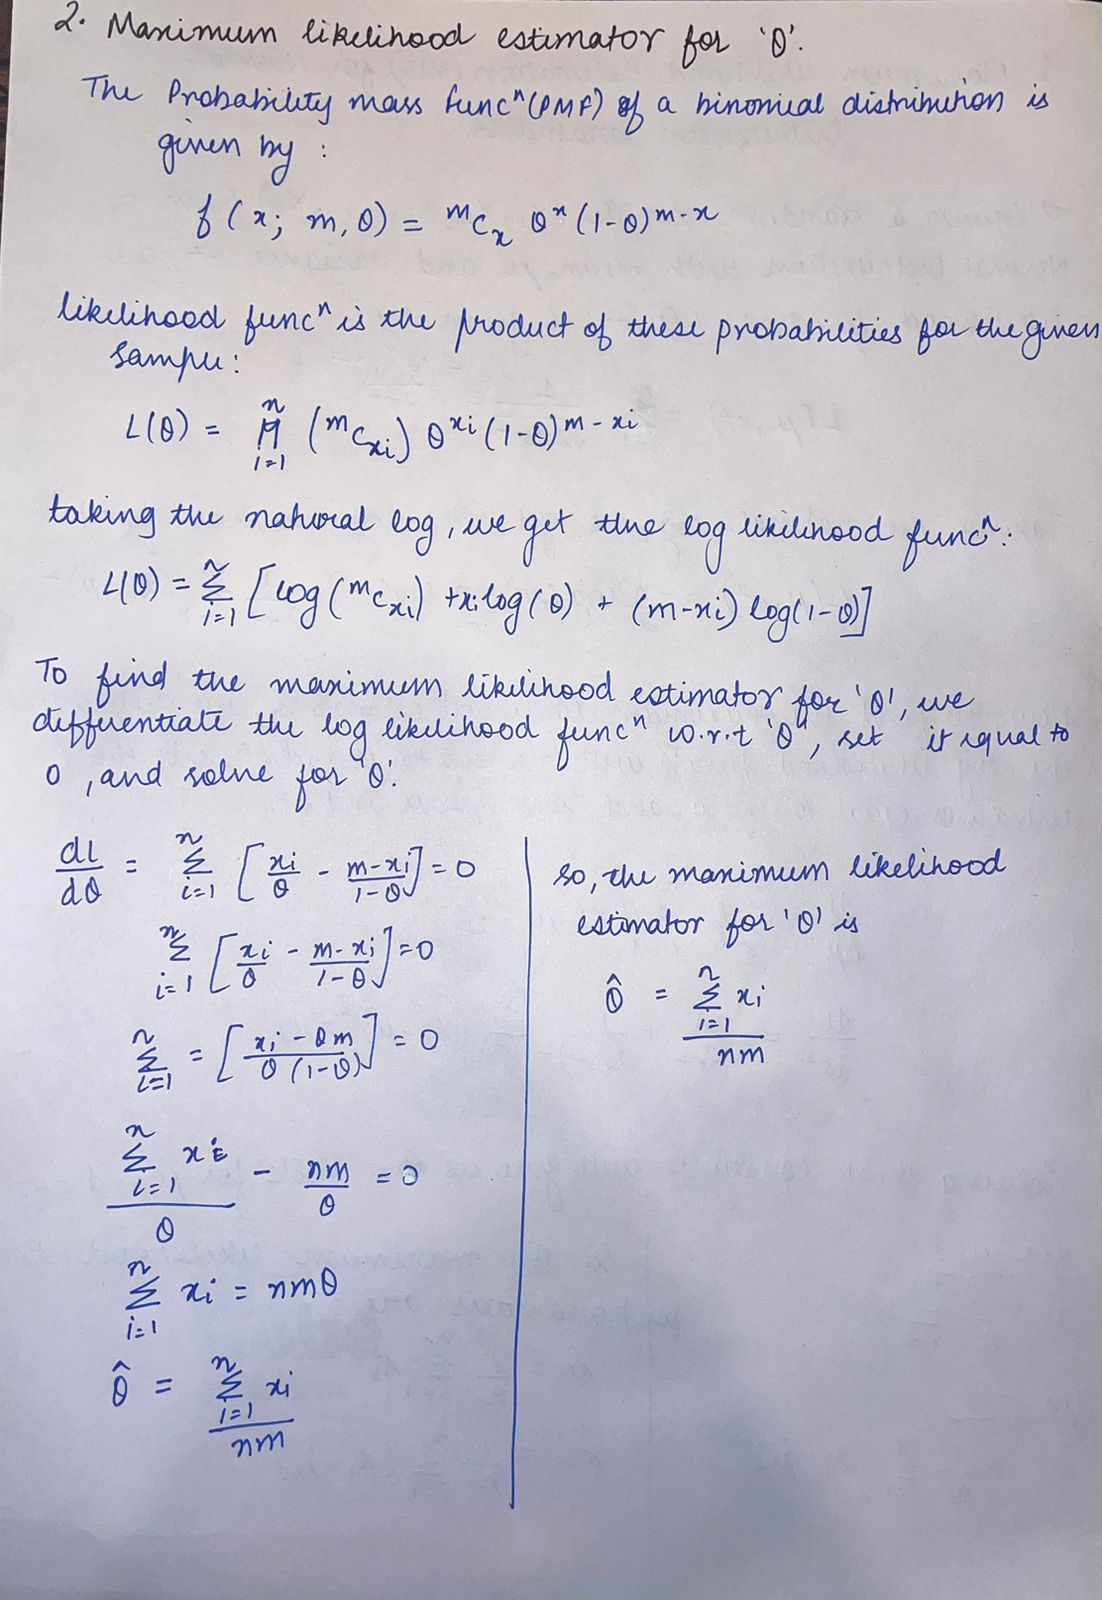 2. Maximum likelihood estimator for 'θ'.
The Probability mass funcⁿ (PMF) of a binomial distribution is
given by :
f (x; m, θ) = ᵐCₓ θˣ (1-θ)ᵐ⁻ˣ
likelihood funcⁿ is the product of these probabilities for the given
sample:
L(θ) = ∏ᵢ₌₁ⁿ (ᵐCxᵢ) θ^xᵢ (1-θ)^m-xᵢ
taking the natural log, we get the log likelihood funcⁿ:
L(θ) = Σᵢ₌₁ⁿ [log(ᵐCxᵢ) + xᵢ log(θ) + (m-xᵢ) log(1-θ)]
To find the maximum likelihood estimator for 'θ', we
differentiate the log likelihood funcⁿ w.r.t 'θ', set it equal to
0, and solve for 'θ'.
dL/dθ = Σᵢ₌₁ⁿ [xᵢ/θ - m-xᵢ/1-θ] = 0
Σᵢ₌₁ⁿ [xᵢ/θ - m-xᵢ/1-θ] = 0
Σᵢ₌₁ⁿ = [xᵢ - θm/θ(1-θ)] = 0
Σᵢ₌₁ⁿ xᵢ/θ - nm/θ = 0
Σᵢ₌₁ⁿ xᵢ = nmθ
θ̂ = Σᵢ₌₁ⁿ xᵢ/nm
so, the maximum likelihood
estimator for 'θ' is
θ̂ = Σᵢ₌₁ⁿ xᵢ/nm